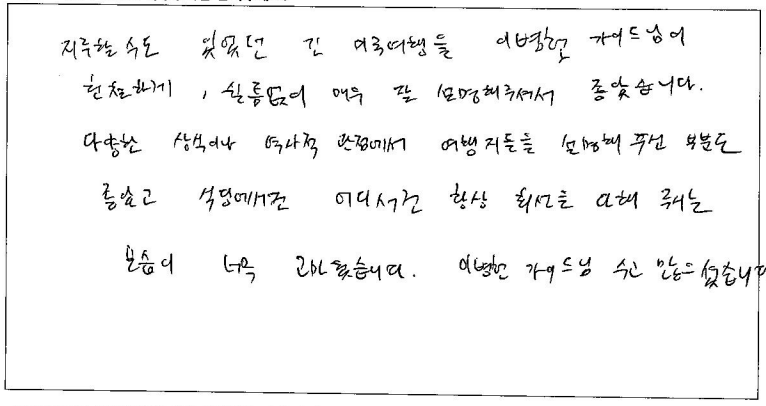 지루할 수도 있었던 긴 미국여행을 이병헌 가이드님이
친절하게, 싫증없이 매우 잘 설명해주셔서 좋았습니다.
다양한 상식이나 역사적 관점에서 여행지들을 설명해 주신 부분도
좋았고 식당에서건 어디서건 항상 최선을 다해 주시는
모습이 너무 고마웠습니다. 이병헌 가이드님 수고 많으셨습니다